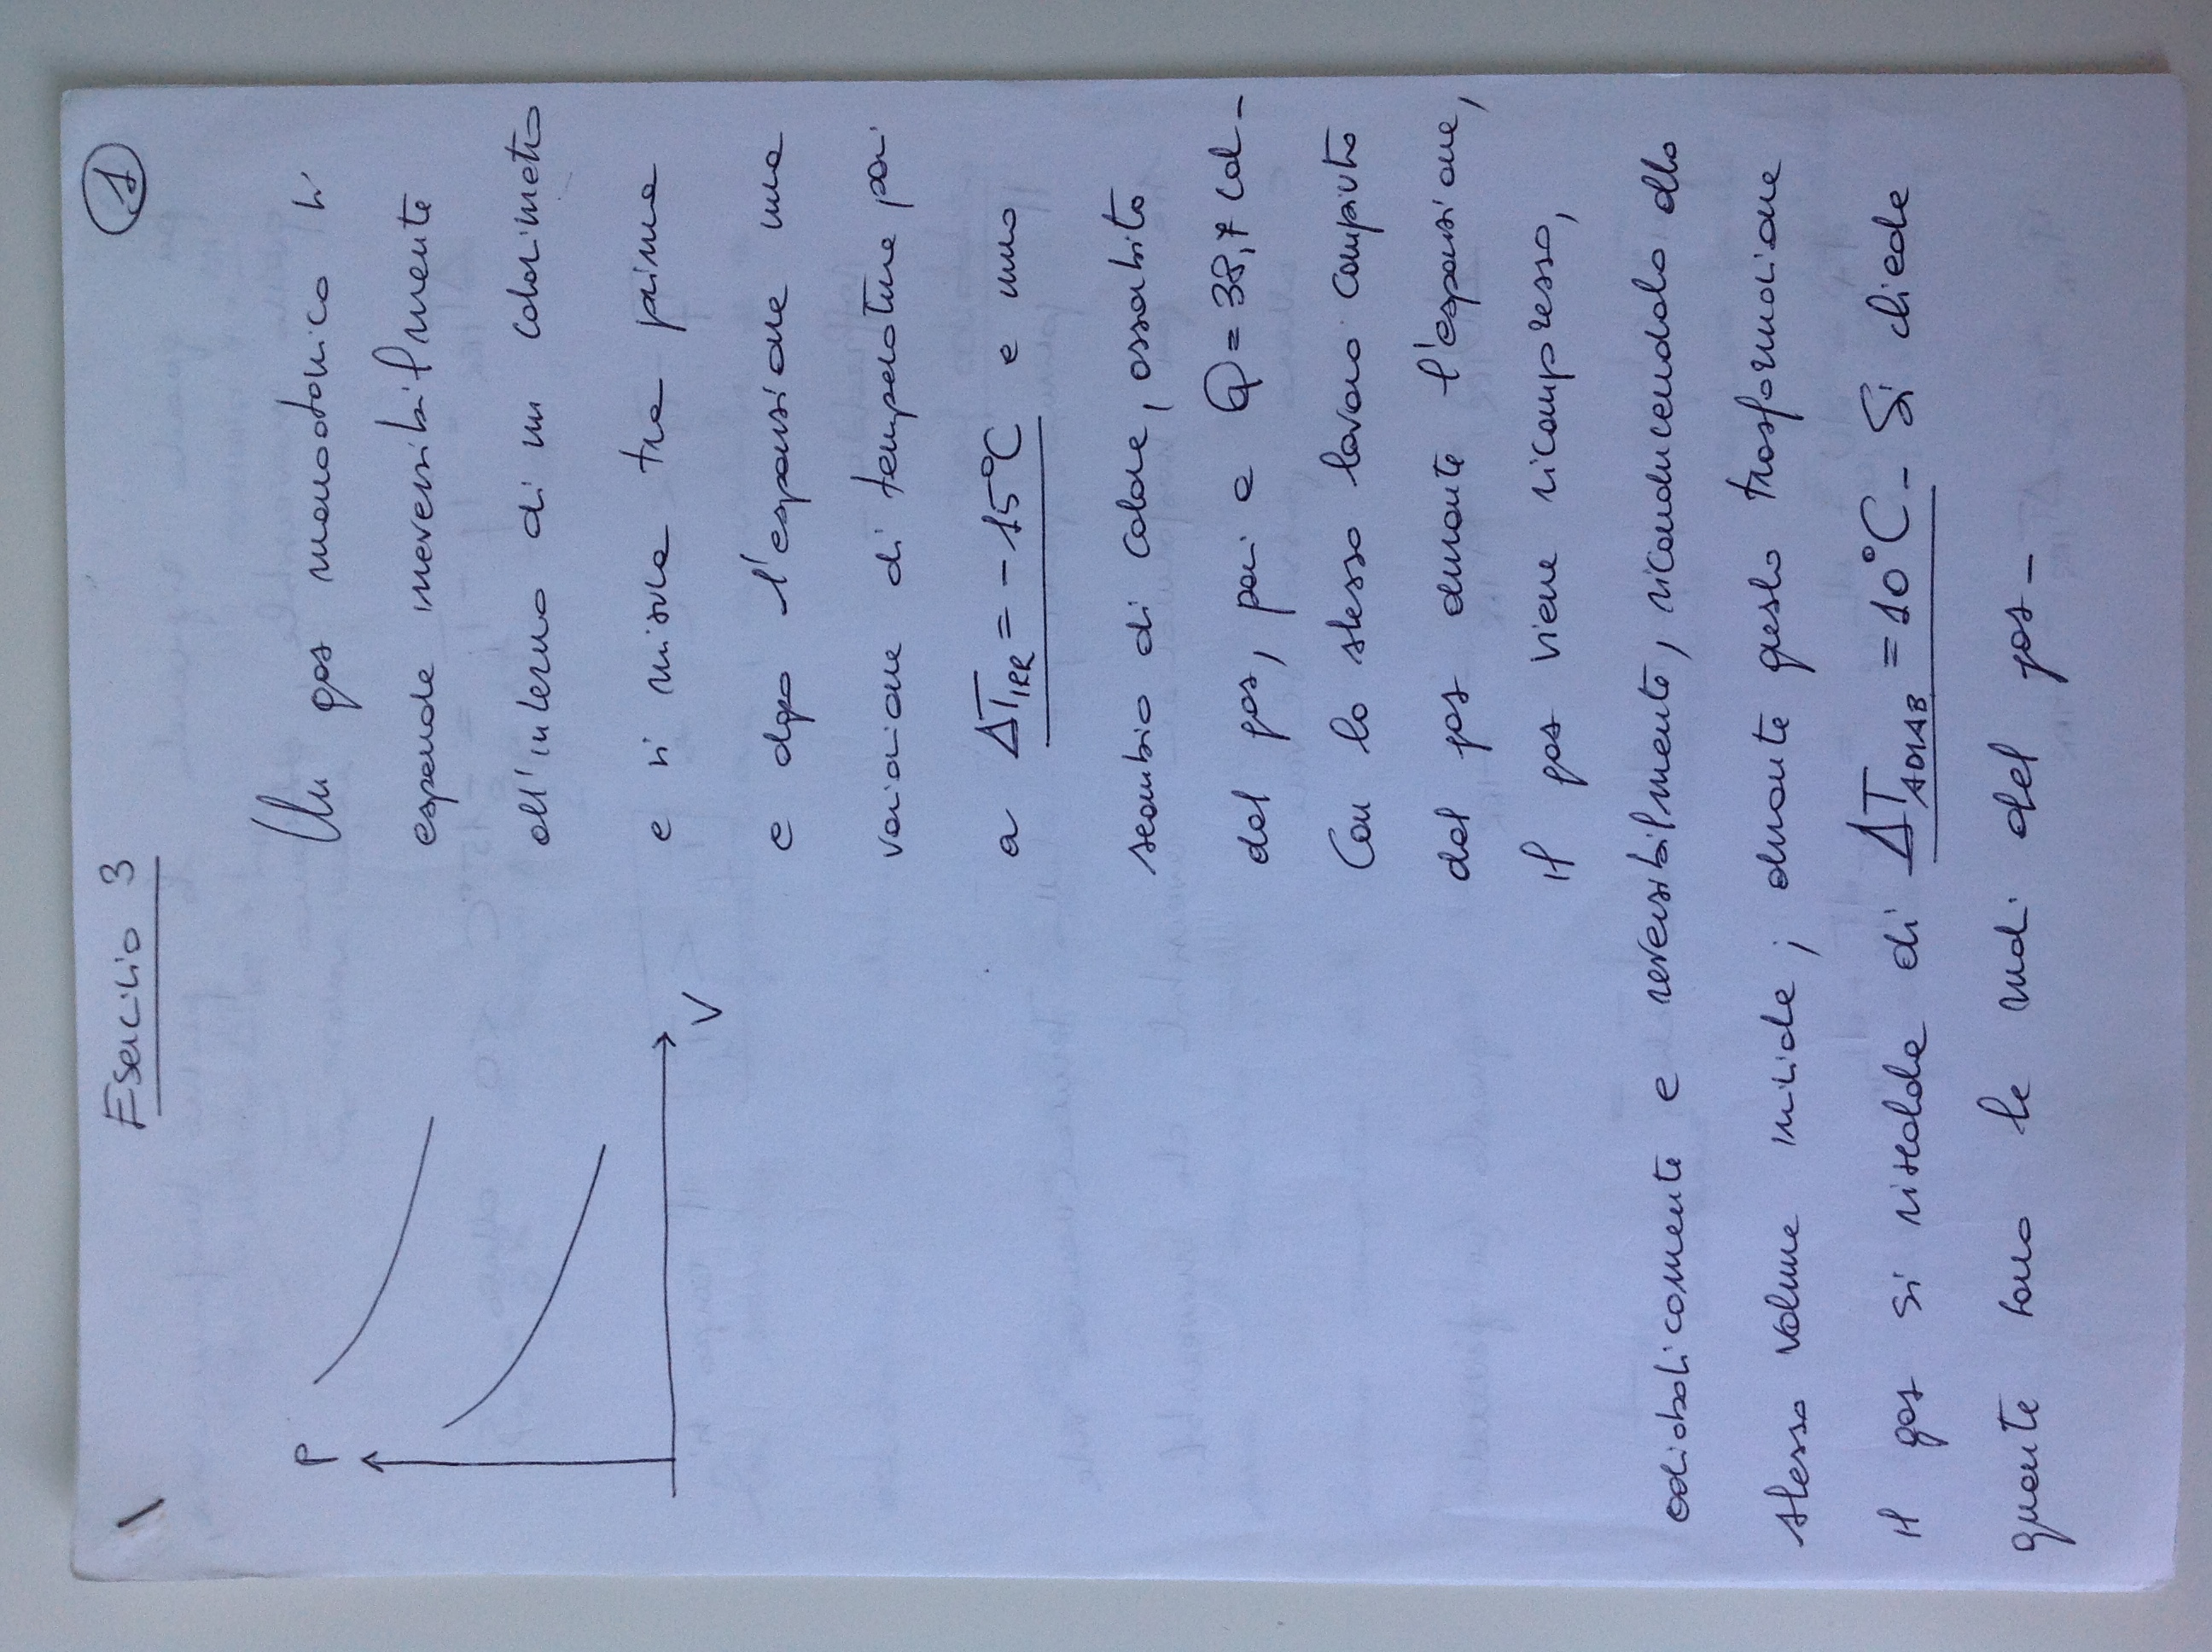 Esercizio 3
1
P
V
Un gas monoatomico si
espande irreversibilmente
all'interno di un calorimetro
e si misura tra prima
e dopo l'espansione una
variazione di temperatura pari
a ΔT_IRR = -15°C e uno
scambio di calore, assorbito
dal gas, pari a Q = 38,7 cal-
Con lo stesso lavoro compiuto
dal gas durante l'espansione,
il gas viene ricompresso,
adiabaticamente e reversibilmente, riconducendolo allo
stesso volume iniziale; durante questa trasformazione
il gas si riscalda di ΔT_ADIAB = 10°C- Si chiede
quante sono le moli del gas-